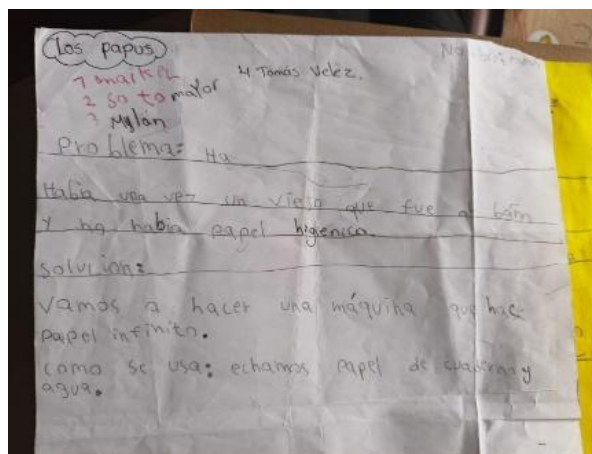 Los papus
1 marker
2 so to mayor 4 Tomás Veléz.
3 Mylan
Problema: Ha
Había una vez un viejo que fue al bañ
y no había papel higenico.
solucion:
vamos a hacer una máquina que hac
papel infinito.
como se usa: echamos papel de cuaderno y
agua.